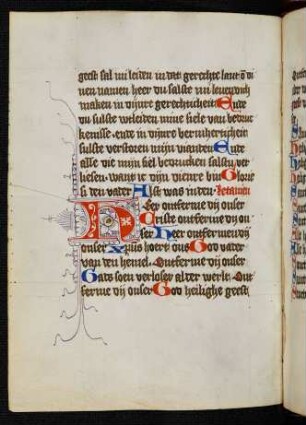 geest sal mi leiden in dat gerechte lant o di
nen namen heer du salste mi leuendich
maken in dijnre gerechticheit Ende
du salste wtleiden mine siele van bedruc
kenisse ende in dijnre bermherticheit
salste verstoren mijn vianden Ende
alle die mijn siel bedrucken salstu ver
liesen want ic dijn diener bin Glorie
si den vader Alst was inden Letanien
Heer ontferme di onser
Criste ontferme di on
ser Heer ontferme di
onser Xpus hoert ons God vader
van den hemel Ontferme di onser
Gods soen verloser alre werlt Ont
ferme di onser God heilighe geest